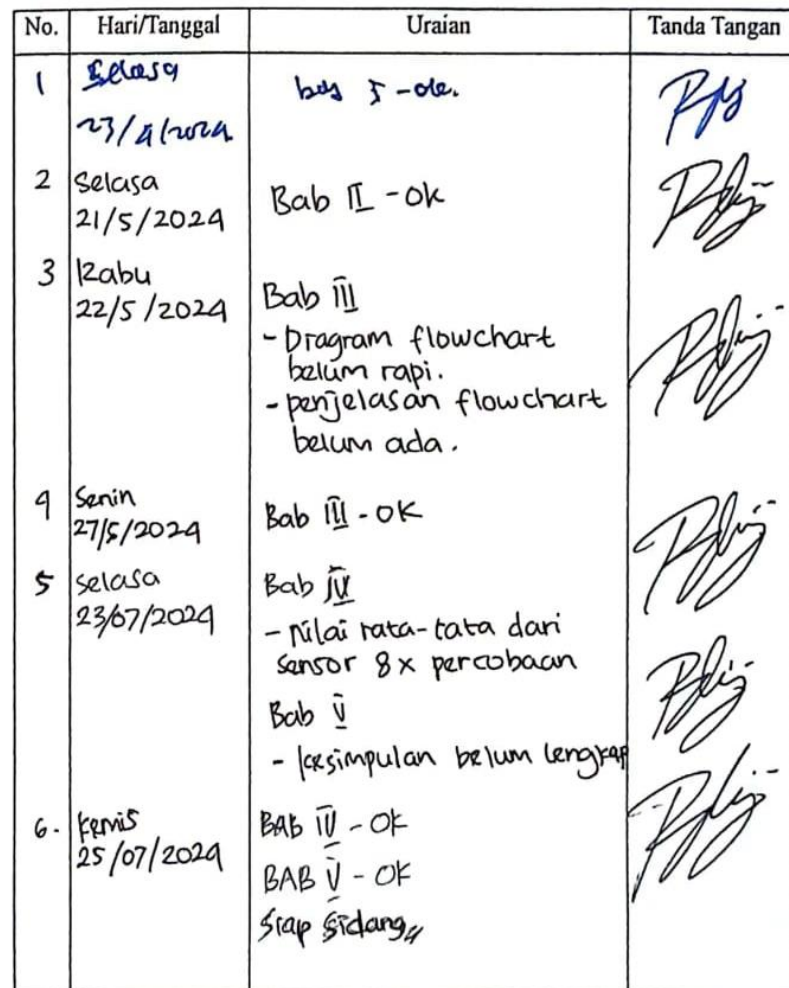 No. Hari/Tanggal Uraian Tanda Tangan
1 Selasa
bab I - ok.
23/4/2024
2 Selasa
21/5/2024
Bab II - Ok
3 Rabu
22/5/2024
Bab III
- Diagram flowchart
belum rapi.
- penjelasan flowchart
belum ada.
4 Senin
27/5/2024
Bab III - OK
5 Selasa
23/07/2024
Bab IV
- Nilai rata-tata dari
sensor 8x percobaan
Bab V
- kesimpulan belum lengkap
6. Kamis
25/07/2024
BAB IV - OK
BAB V - OK
Siap Sidang